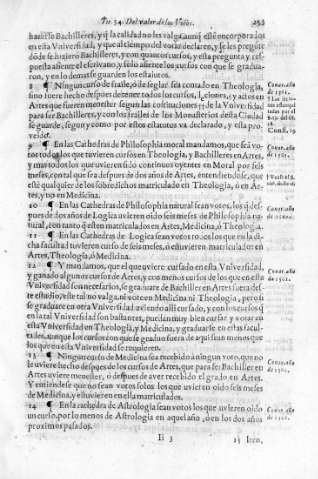 Tit. 34. Del valor de los Votos.
hazerlo Bachilleres, y q̃ la calidad no les valga aunq̃ esté encorporados
en esta Universidad, y que al tiempo del votar declaren, y se les pregunte
dõde se hizierõ Bachilleres, y con quantos cursos, y esta pregunta y res-
puesta asiente el escrivano, y sólo les aproveche los cursos con que se gradua-
ron, y en lo demas se guarden los estatutos.
8 ¶ Ningun curso de fraile, ó de seglar sea contado en Theologia,
sino fuere hecho despues de tener todos los cursos, Lectiones, y actos en
Artes que fueren menester segun las constituciones de la Universidad
para ser Bachilleres, y con los frailes de los Monasterios desta Ciudad
se guarde, segun y como por estos estatutos va declarado, y esta pro-
veido.
9 ¶ En las Cathedras de Philosophia moral mandamos, que seã vo-
tos todos los que tuvieren curso en Theologia, y Bachilleres en Artes,
y mas todos los que uvieren sido continuos oyentes en Moral por seis
meses, con tal que sea despues de dos años de Artes, entendiendose, que
esté qualquier de los sobredichos matriculado en Theologia, ó en Ar-
tes, y no en Medicina.
10 ¶ En las Cathedras de Philosophia natural sean votos, los q̃ des-
pues de dos años de Logica uvieren oido seis meses de Philosophia na-
tural, con tanto q̃ esten matriculados en Artes, Medicina, ó Theologia.
11 ¶ En las Cathedras de Logica sean votos todos los que en la di-
cha facultad tuvieren curso de seis meses, ó estuvieren matriculados en
Artes, Theologia, ó Medicina.
12 ¶ Y mandamos, que el que uviere cursado en esta Universidad,
y ganado algunos cursos de Artes, y con menos cursos de los que en esta
Universidad son necesarios, se graduare de Bachiller en Artes fuera des-
te estudio, este tal no valga, ni vote en Medicina ni Theologia, pero si
se graduare en otra Universidad aviendo alli cursado, y con los cursos q̃
en la tal Universidad son bastantes, puedan muy bien cursar y votar en
esta Universidad en Theologia, y Medicina, y graduarse en estas facul-
tades, aunque los cursos con que se graduo fuera de aqui sean menos que
los que en esta Universidad se requieren.
13 ¶ Ningun curso de Medicina sea recebido á ningun voto, que no
le uviere hecho despues de los cursos de Artes, que para ser Bachiller en
Artes uviere menester, ó despues de aver recebido el grado en Artes.
Y entiendese que no sean votos solos los que uvieren oido seis meses
de Medicina, y estuvieren en ella matriculados.
14 ¶ En la cathedra de Astrologia sean votos los que uvieren oido
un curso, por lo menos de Astrologia en aquel año, ó en los dos años
proximos pasados.
Ii 3
15 Iten,